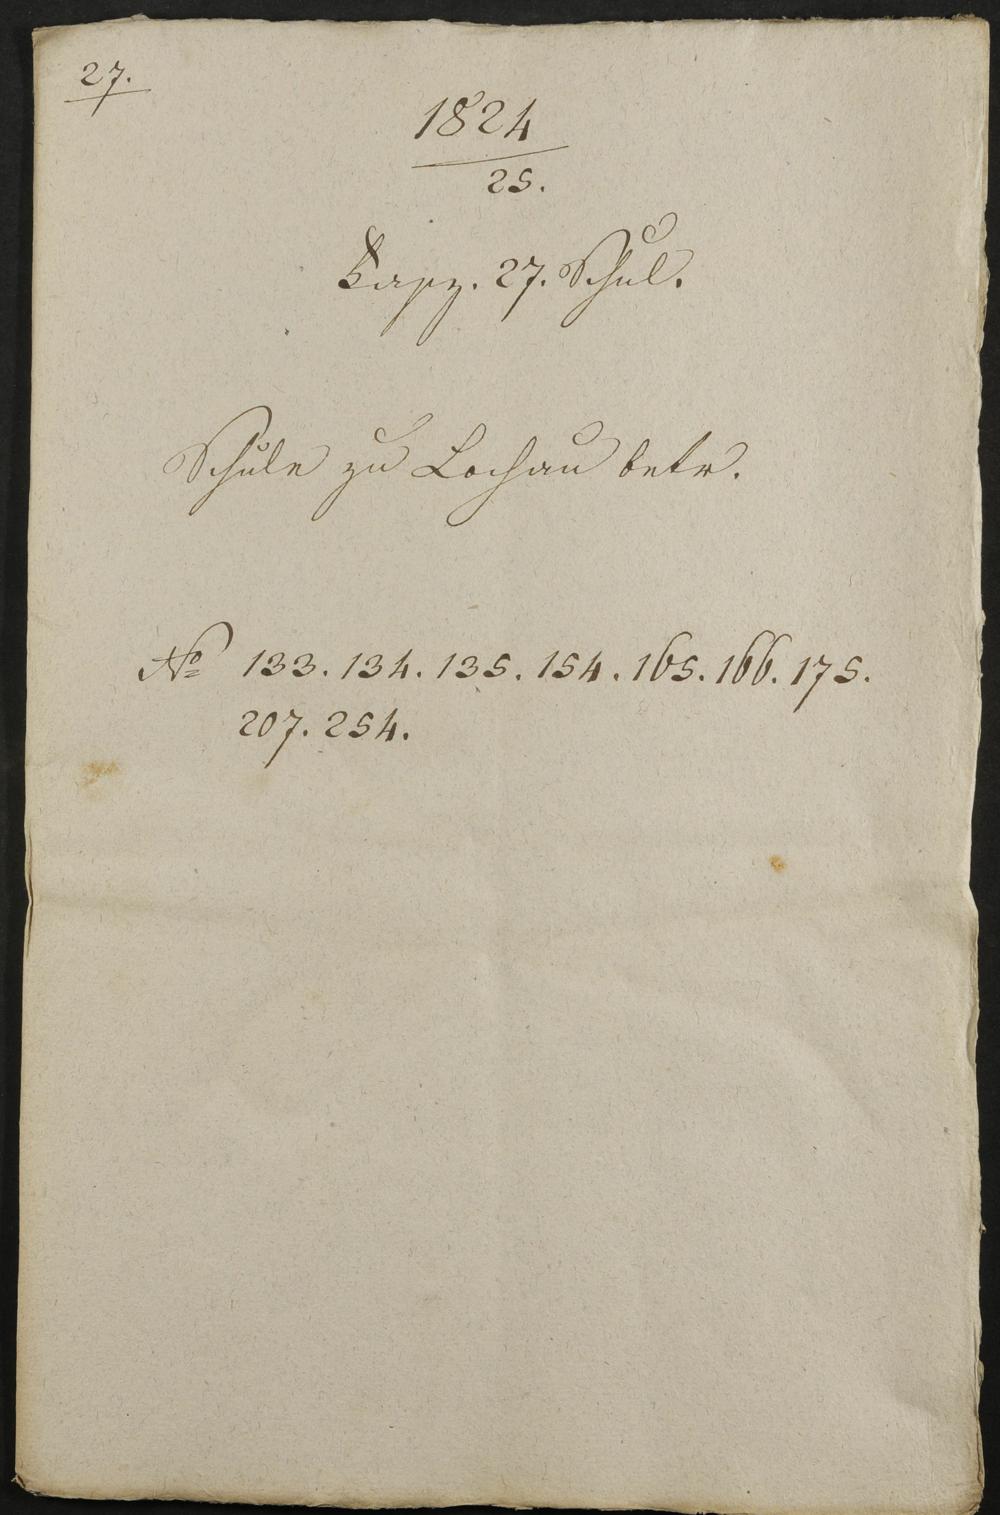 27.
1824
25.
Kapz. 27. Schul.
Schule zu Lochau betr.
No 133. 134. 135. 154. 165. 166. 175.
207. 254.